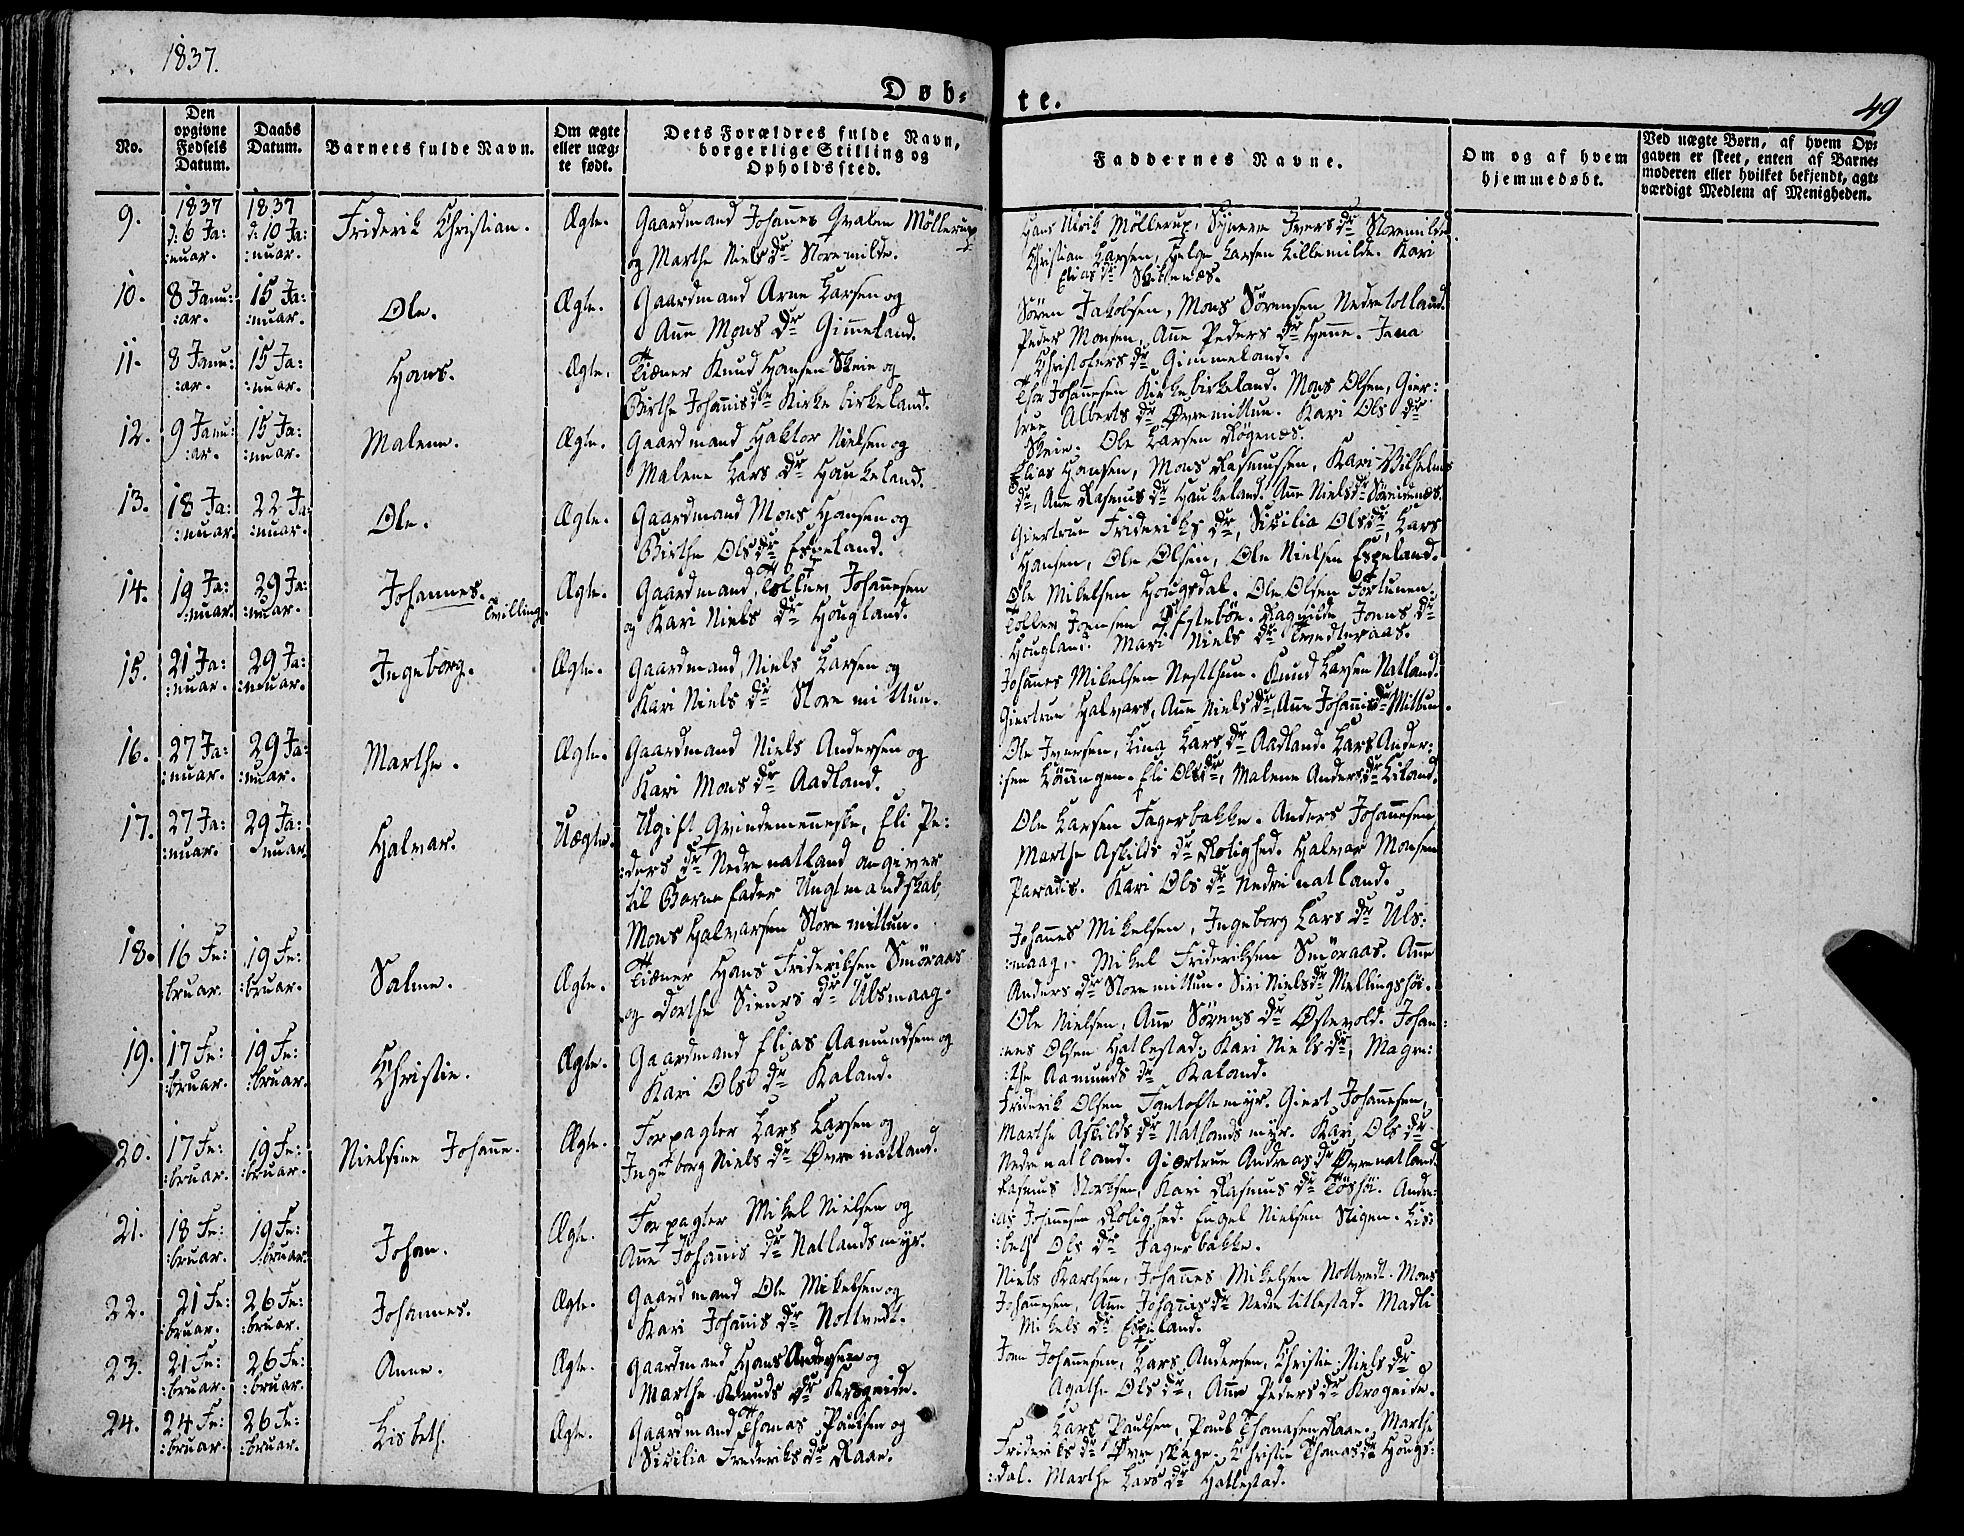 1837.
Døb=
te.
49
No.
Den opgivne Fødsels Datum.
Daabs Datum.
Barnets fulde Navn.
Om ægte eller uæg-te født.
Dets Forældres fulde Navn, borgerlige Stilling og Opholdssted.
Faddernes Navne.
Om og af hvem hjemmedøbt.
Ved uægte Børn, af hvem Op-gaven er skeet, enten af Barne-moderen eller hvilket bekjendt, agt-værdigt Medlem af Menigheden.
9.
1837 d: 6 Ja:
:nuar.
1837 d: 10 Ja:
:nuar.
Friderik Christian.
Ægte.
Gaardmand Johanes Qvalen Möllerup
og Marthe Niels dr Storemilde.
Hans Ulrik Möllerup, Synneve Ivers dr Storemilde.
Christian Larsen, Helge Larsen Lillemilde. Kari
Elias dr Skibenæs.
10.
8 Janu:
:ar.
15 Ja:
:nuar.
Ole.
Ægte.
Gaardmand Arne Larsen og
Anne Mons dr Gimmeland.
Sören Jakobsen, Mons Sörensen Nedretotland.
Peder Monsen, Anne Peders dr Henne. Jana
Christofers dr Gimmeland.
11.
8 Janu:
:ar.
15 Ja:
:nuar.
Hans.
Ægte.
Tiæner Knud Hansen Skeie og
Birthe Johannis dr Kirkebirkeland.
Thor Johanesen Kirkebirkeland. Mons Olsen, Gier:
true Alberts dr Øvremittun. Kari Ols dr
Skeie. Ole Larsen Rögenæs.
12.
9 Janu:
:ar.
15 Ja:
:nuar.
Malene.
Ægte.
Gaardmand Haktor Nielsen og
Malene Lars dr Haukeland.
Elias Hansen, Mons Rasmussen, Kari Vilhelms
dr, Anne Rasmus dr Haukeland. Anne Niels dr Söreidenæs.
13.
18 Ja:
:nuar.
22 Ja:
:nuar.
Ole.
Ægte.
Gaardmand Mons Hansen og
Birthe Ols dr Espeland.
Giertrue Frideriks dr, Sicilia Ols dr, Lars
Hansen, Ole Olsen, Ole Nielsen Espeland.
14.
19 Ja:
:nuar.
29 Ja:
:nuar.
Johannes.
Tvilling.
Ægte.
Gaardmand, Tollev Johannesen
og Kari Niels dr Hougland.
Ole Mikelsen Hougsdal. Ole Olsen Fortunen.
Tollev Joensen Öfstebön. Ragnilde Joens dr
Hougland. Mari Niels dr Tvedteraas.
15.
21 Ja:
:nuar.
29 Ja:
:nuar.
Ingeborg.
Ægte.
Gaardmand, Niels Larsen og
Kari Niels dr Storemittun.
Johannes Mikelsen Nestthun. Knud Larsen Natland.
Giertrue Halvars, Anne Niels dr, Anne Johannis dr Mittun.
16.
27 Ja:
:nuar.
29 Ja:
:nuar.
Marthe.
Ægte.
Gaardmand Niels Andersen og
Kari Mons dr Aadland.
Ole Iversen, Lina Lars dr Aadland. Lars Ander:
:sen Löningen. Eli Ols dr, Malene Anders dr Liland.
17.
27 Ja:
:nuar.
29 Ja:
nuar.
Halvar.
Uægte.
Ugift Qvindemenneske, Eli Pe:
:ders dr Nedrenatland angiver
til Barnefader Ungtmandskab,
Mons Halvarsen Storemittun.
Ole Larsen Fagerbakke. Anders Johannesen,
Marthe Askilds dr Rolighed. Halvar Monsen
Paradis. Kari Ols dr Nedrenatland.
18.
16 Fe:
bruar.
19 Fe:
:bruar.
Salme.
Ægte.
Tiæner Hans Frideriksen Smöraas
og Dorthe Siurs dr Ulsmaag.
Johannes Mikelsen, Ingeborg Lars dr Uls:
:maag. Mikel Frideriksen Smöraas. Anne
Anders dr Storemittun. Siri Niels dr Mellingshöi.
19.
17 Fe:
:bruar.
19 Fe:
:bruar.
Christie.
Ægte.
Gaardmand Elias Aamundsen og
Kari Ols dr Kaland.
Ole Nielsen, Anne Sörens dr Østevold. Johan:
:nes Olsen Hatlestad. Kari Niels dr, Magre:
:the Aamunds dr Kaland.
20.
17 Fe:
:bruar.
19 Fe:
:bruar.
Nielsine Johanne.
Ægte.
Forpagter Lars Larsen og
Ingeborg Niels dr Øvrenatland.
Friderik Olsen Tontoftemyr. Giert Johannesen,
Marthe Askilds dr Natlandsmyr. Kari Ols dr
Nedrenatland. Giertrue Andreas dr Øvrenatland.
21.
18 Fe:
:bruar.
19 Fe:
:bruar.
Johan.
Ægte.
Forpagter Mikel Nielsen og
Anne Johannis dr Natlandsmyr.
Rasmus Nordsen, Kari Rasmus dr Töshöi. Andre:
:as Johannesen Rolighed. Engel Nielsen Stigen. Lis:
:beth Ols dr Fagerbakke.
22.
21 Fe:
:bruar.
26 Fe:
:bruar.
Johannes.
Ægte.
Gaardmand Ole Mikelsen og
Kari Johannis dr Nottvedt.
Niels Karlsen, Johannes Mikelsen Nottvedt. Mons
Johannesen, Anne Johannis dr Nedretitlestad. Madli
Mikels dr Espeland.
23.
21 Fe:
:bruar.
26 Fe:
:bruar.
Anne.
Ægte.
Gaardmand Hans Andersen og
Marthe Knuds dr Krogeide.
Joen Johannesen, Lars Andersen, Christie Niels dr
Agathe Ols dr, Anne Peders dr Krogeide.
24.
24 Fe:
:bruar.
26 Fe:
:bruar.
Lisbeth.
Ægte.
Gaardmand Thomas Paulsen og
Sicilia Frederiks dr Raae.
Lars Paulsen, Poul Thomasen Raae. Marthe
Frideriks dr Øvreskage. Christie Thomas dr Hougs:
:dal. Marthe Lars dr Hatlestad.